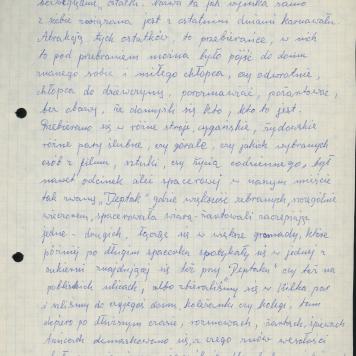 ostatki. Nazwa ta jak wynika samo
z siebie związana jest z ostatnimi dniami karnawału.
Atrakcją tych ostatków, to przebierańce, w nich
to pod przebraniem można było pójść do domu
znanego sobie i miłego chłopca, czy odwrotnie,
chłopca do dziewczyny, porozmawiać, pożartować,
bez obawy, że domyśli się kto, kto to jest.
Przebierano się w różne stroje, cygańskie, żydowskie
różne pary ślubne, czy górale, czy jakich wybranych
osób z filmu, sztuki, czy życia codziennego, był
nawet odcinek alei spacerowej w naszym mieście
tak zwany "Deptak" gdzie większość zebranych, szczególnie
wieczorem, spacerowała
jedne - drugich, łącząc się w większe gromady, które
później po długim spacerku spotykały się w jednej z
cukierni znajdującej się tuż przy "Deptaku" czy też na
pobliskich ulicach, albo zbieraliśmy się kilka par
i szliśmy do czyjegoś domu, koleżanki czy kolegi, tam
dopiero po dłuższym czasie, rozmowach, żartach, śpiewach
tańcach demaskowano się, z czego znów wesołości